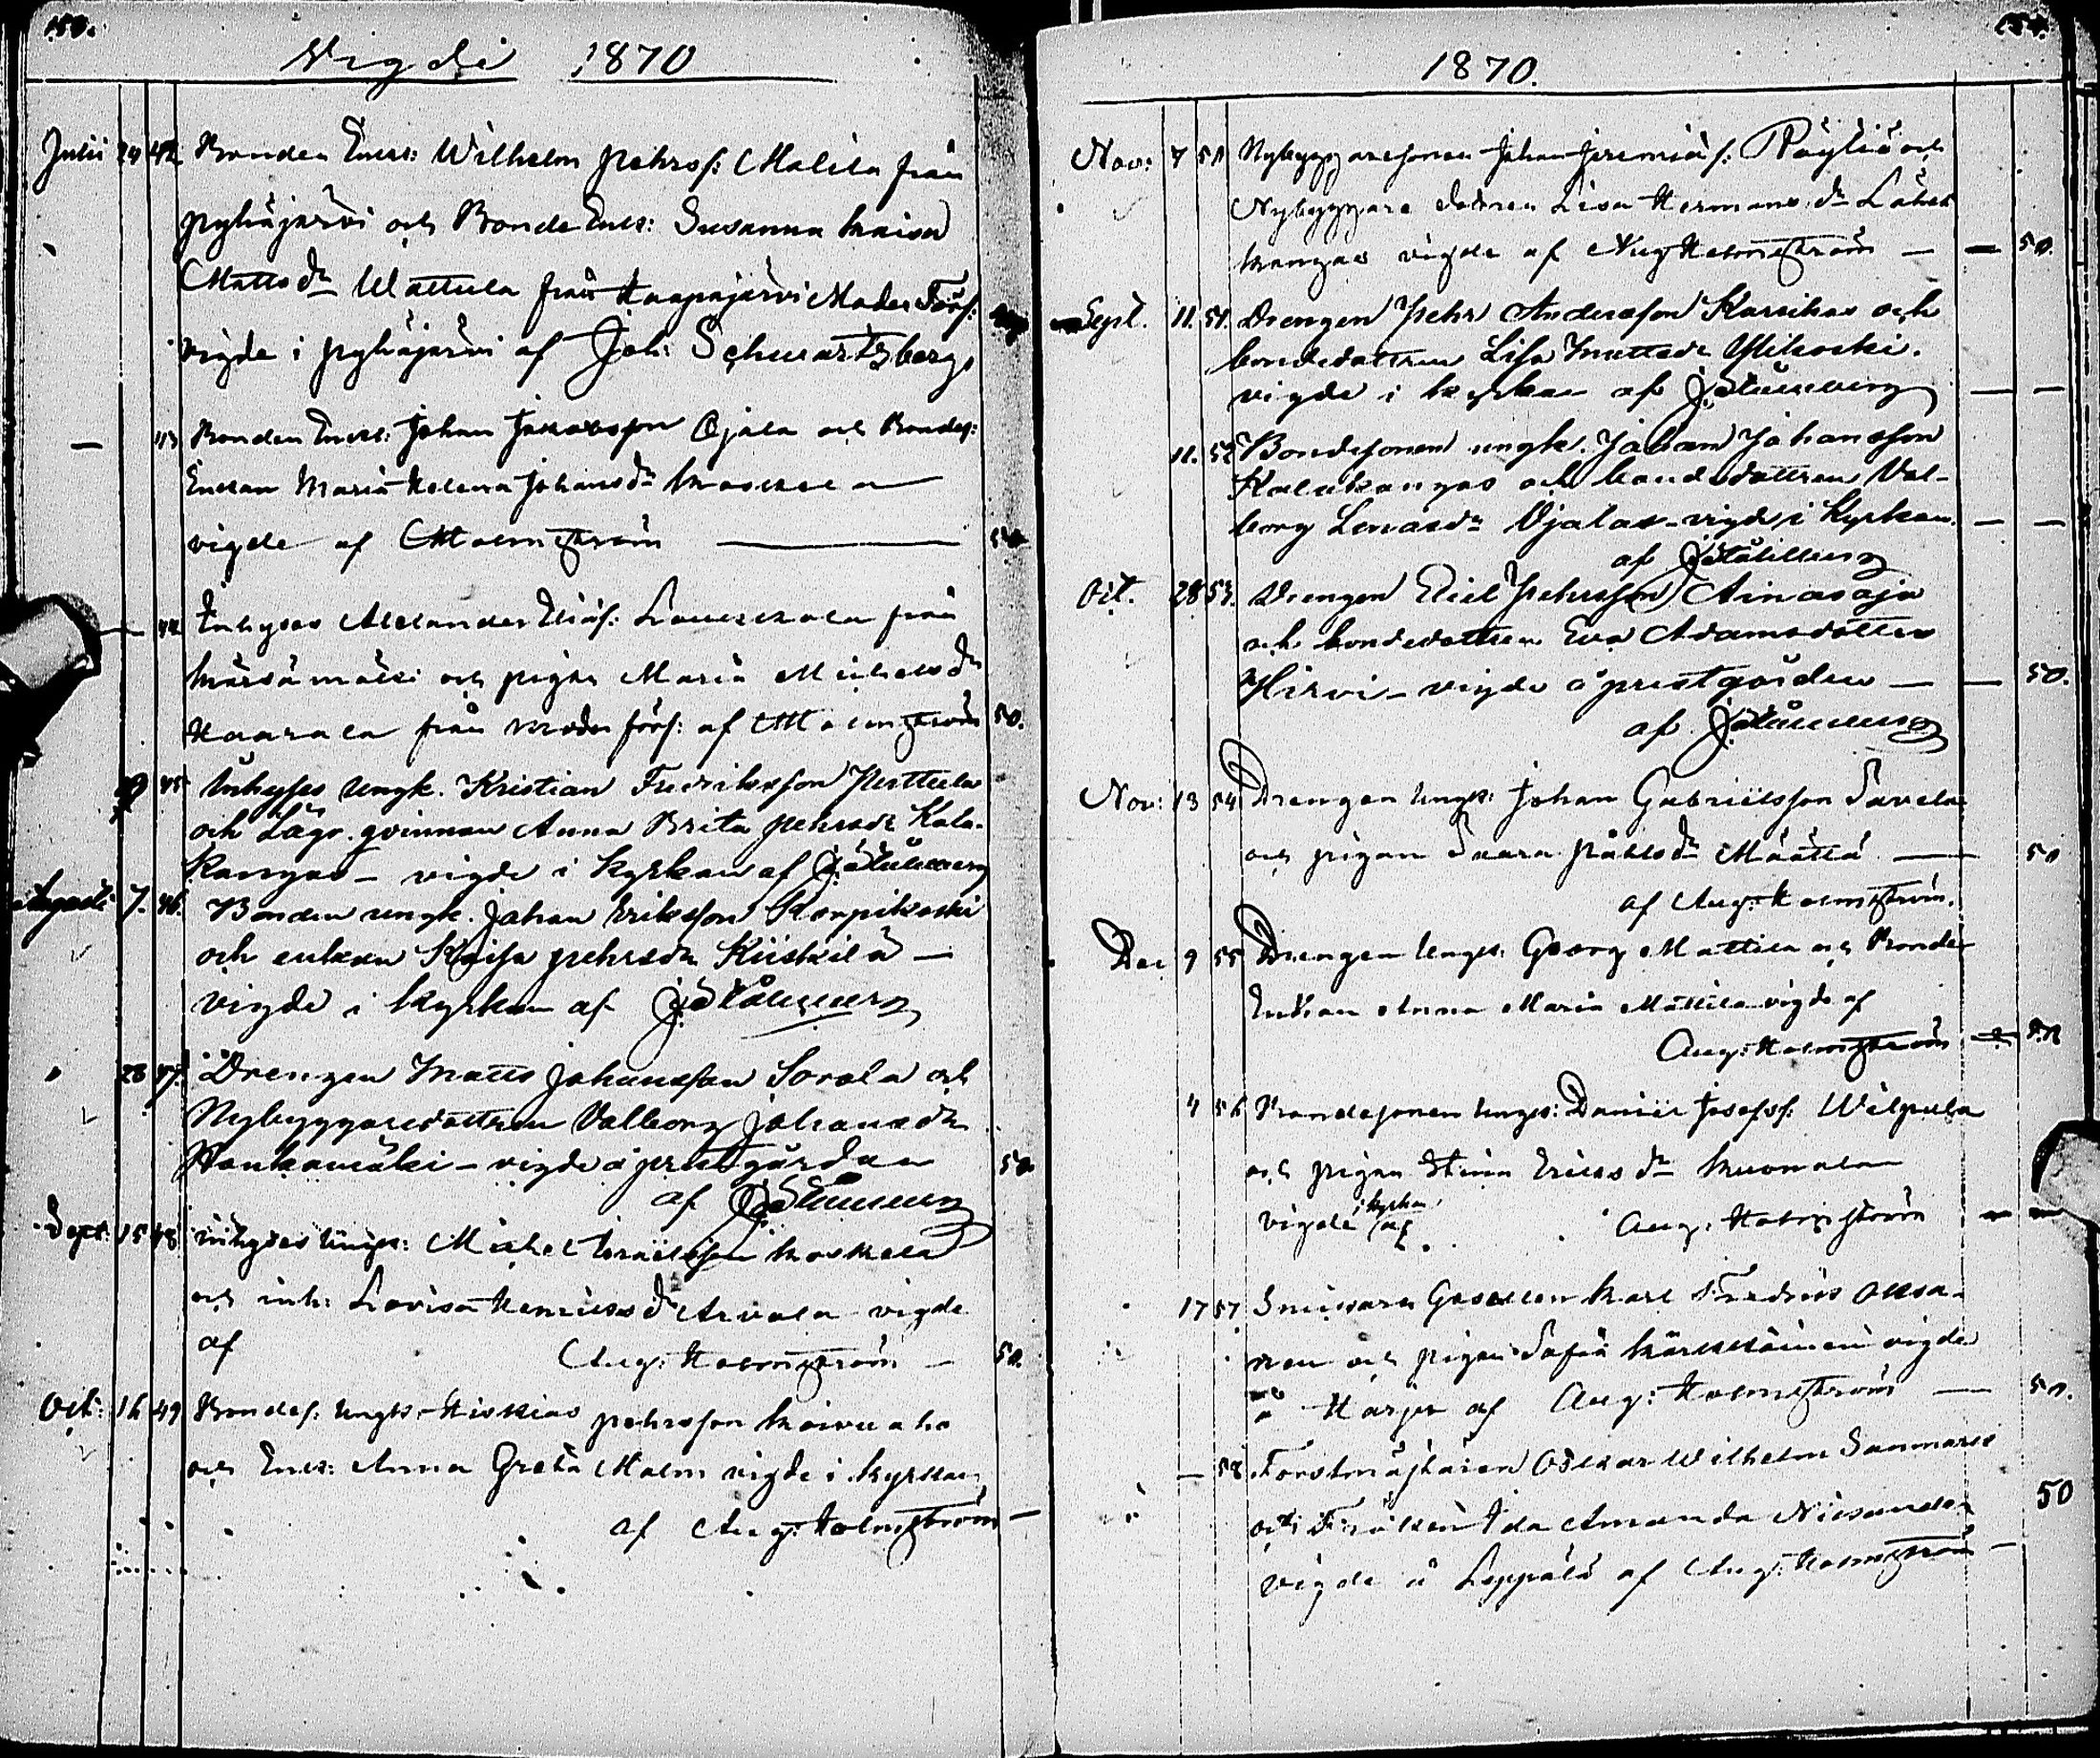 Vigde 1870
Julii 24 42 Bonden Enkl: Wilhelm Pehrss: Malila från
Pyhäjärvi och Bonde Enk: Susanna Kaisa
Matts dr Wattula från Haapajärvi Moder Förs:
vigde i Pyhäjärvi af Joh: Schwartzberg
— 43 Bonden Enkl: Johan Jakobsson Ojala och Bondes:
Enkan Maria Helena Johans dr Koskela
vigde af A Holmström — 50
— 44 Inhyses Alexander Eliass: Louekkola från
Kärsämäki och pigan Maria Michels dr
Haarala från Moder förs: af A Holmström 50.
45 Inhyses Ungk. Kristian Fredriksson Perttula
och Läg. qvinnan Anna Brita Pehrsdr Kala-
kangas – vigde i kyrkan af J. Stålberg
Augusti 7. 46. Bonden ungk. Johan Eriksson Korpikoski
och enkan Kaisa Pehrsdr Kiiskilä —
vigde i kyrkan af J. Stålberg
28 47. Drengen Matts Johansson Sorola och
Nybyggaredottren Valborg Johansdr
Honkamäki – vigde å prestgården 50
af J. Stålberg
Sept: 15 48 inhyses Ungk: Michel Israelsson Koskela
och inh: Lovisa Henriks dr Arvola vigde
af Aug: Holmström — 50.
Oct: 16 49 Bondes: Ungk: Hiskias Pehrsson Koivuaho
och Enk: Anna Greta Malm vigde i kyrkan
af Aug: Holmström —
1870.
Nov: 7 50 Nybyggaresonen Johan Jeremias: Räyliö och
Nybyggare dottren Lisa Hermans dr Lähet
kangas vigde af Aug Holmström — — 50.
Sept. 11. 51. Drengen Pehr Andersson Karsikas och
bondedottren Lisa Mattsdr Ylikoski.
vigde i kyrkan af J. Stålberg — —
11. 52 Bondesonen ungk. Johan Johansson
Kalukangas och bondedottren Val-
borg Lenasdr Ojalas – vigde i kyrkan. — —
af J. Stålberg
Oct. 28 53. Drengen Eliel Pehrsson Ainasoja
och bondedottren Eva Adamsdotter
Hirvi – vigde å prestgården — — 50.
af J. Stålberg
Nov: 13 54 Drengen Ungk: Johan Gabrielsson Savela
och pigan Saara Påhls dr Määttä — 50
af Aug: Holmström.
Dec 9 55 Drengen Ungk: Georg Mattila och Bonde
Enkan Anna Maria Mattila vigde af
Aug: Holmström — 50
4 56 Bondesonen Ungk: Daniel Josefss: Wilpula
och pigan Stina Eriks dr Kuonala
vigde i kyrkan af Aug: Holmström — —
17 57 Smidare Gesällen Karl Fredrik Oksa-
nen och pigan Sofia Kärkkäinen vigde
å Harju af Aug: Holmström — 50.
— 58 Forstmästaren Oskar Wilhelm Sanmark
och Fröken Ida Amanda Nikander 50
vigde å Leppälä af Aug: Holmström —